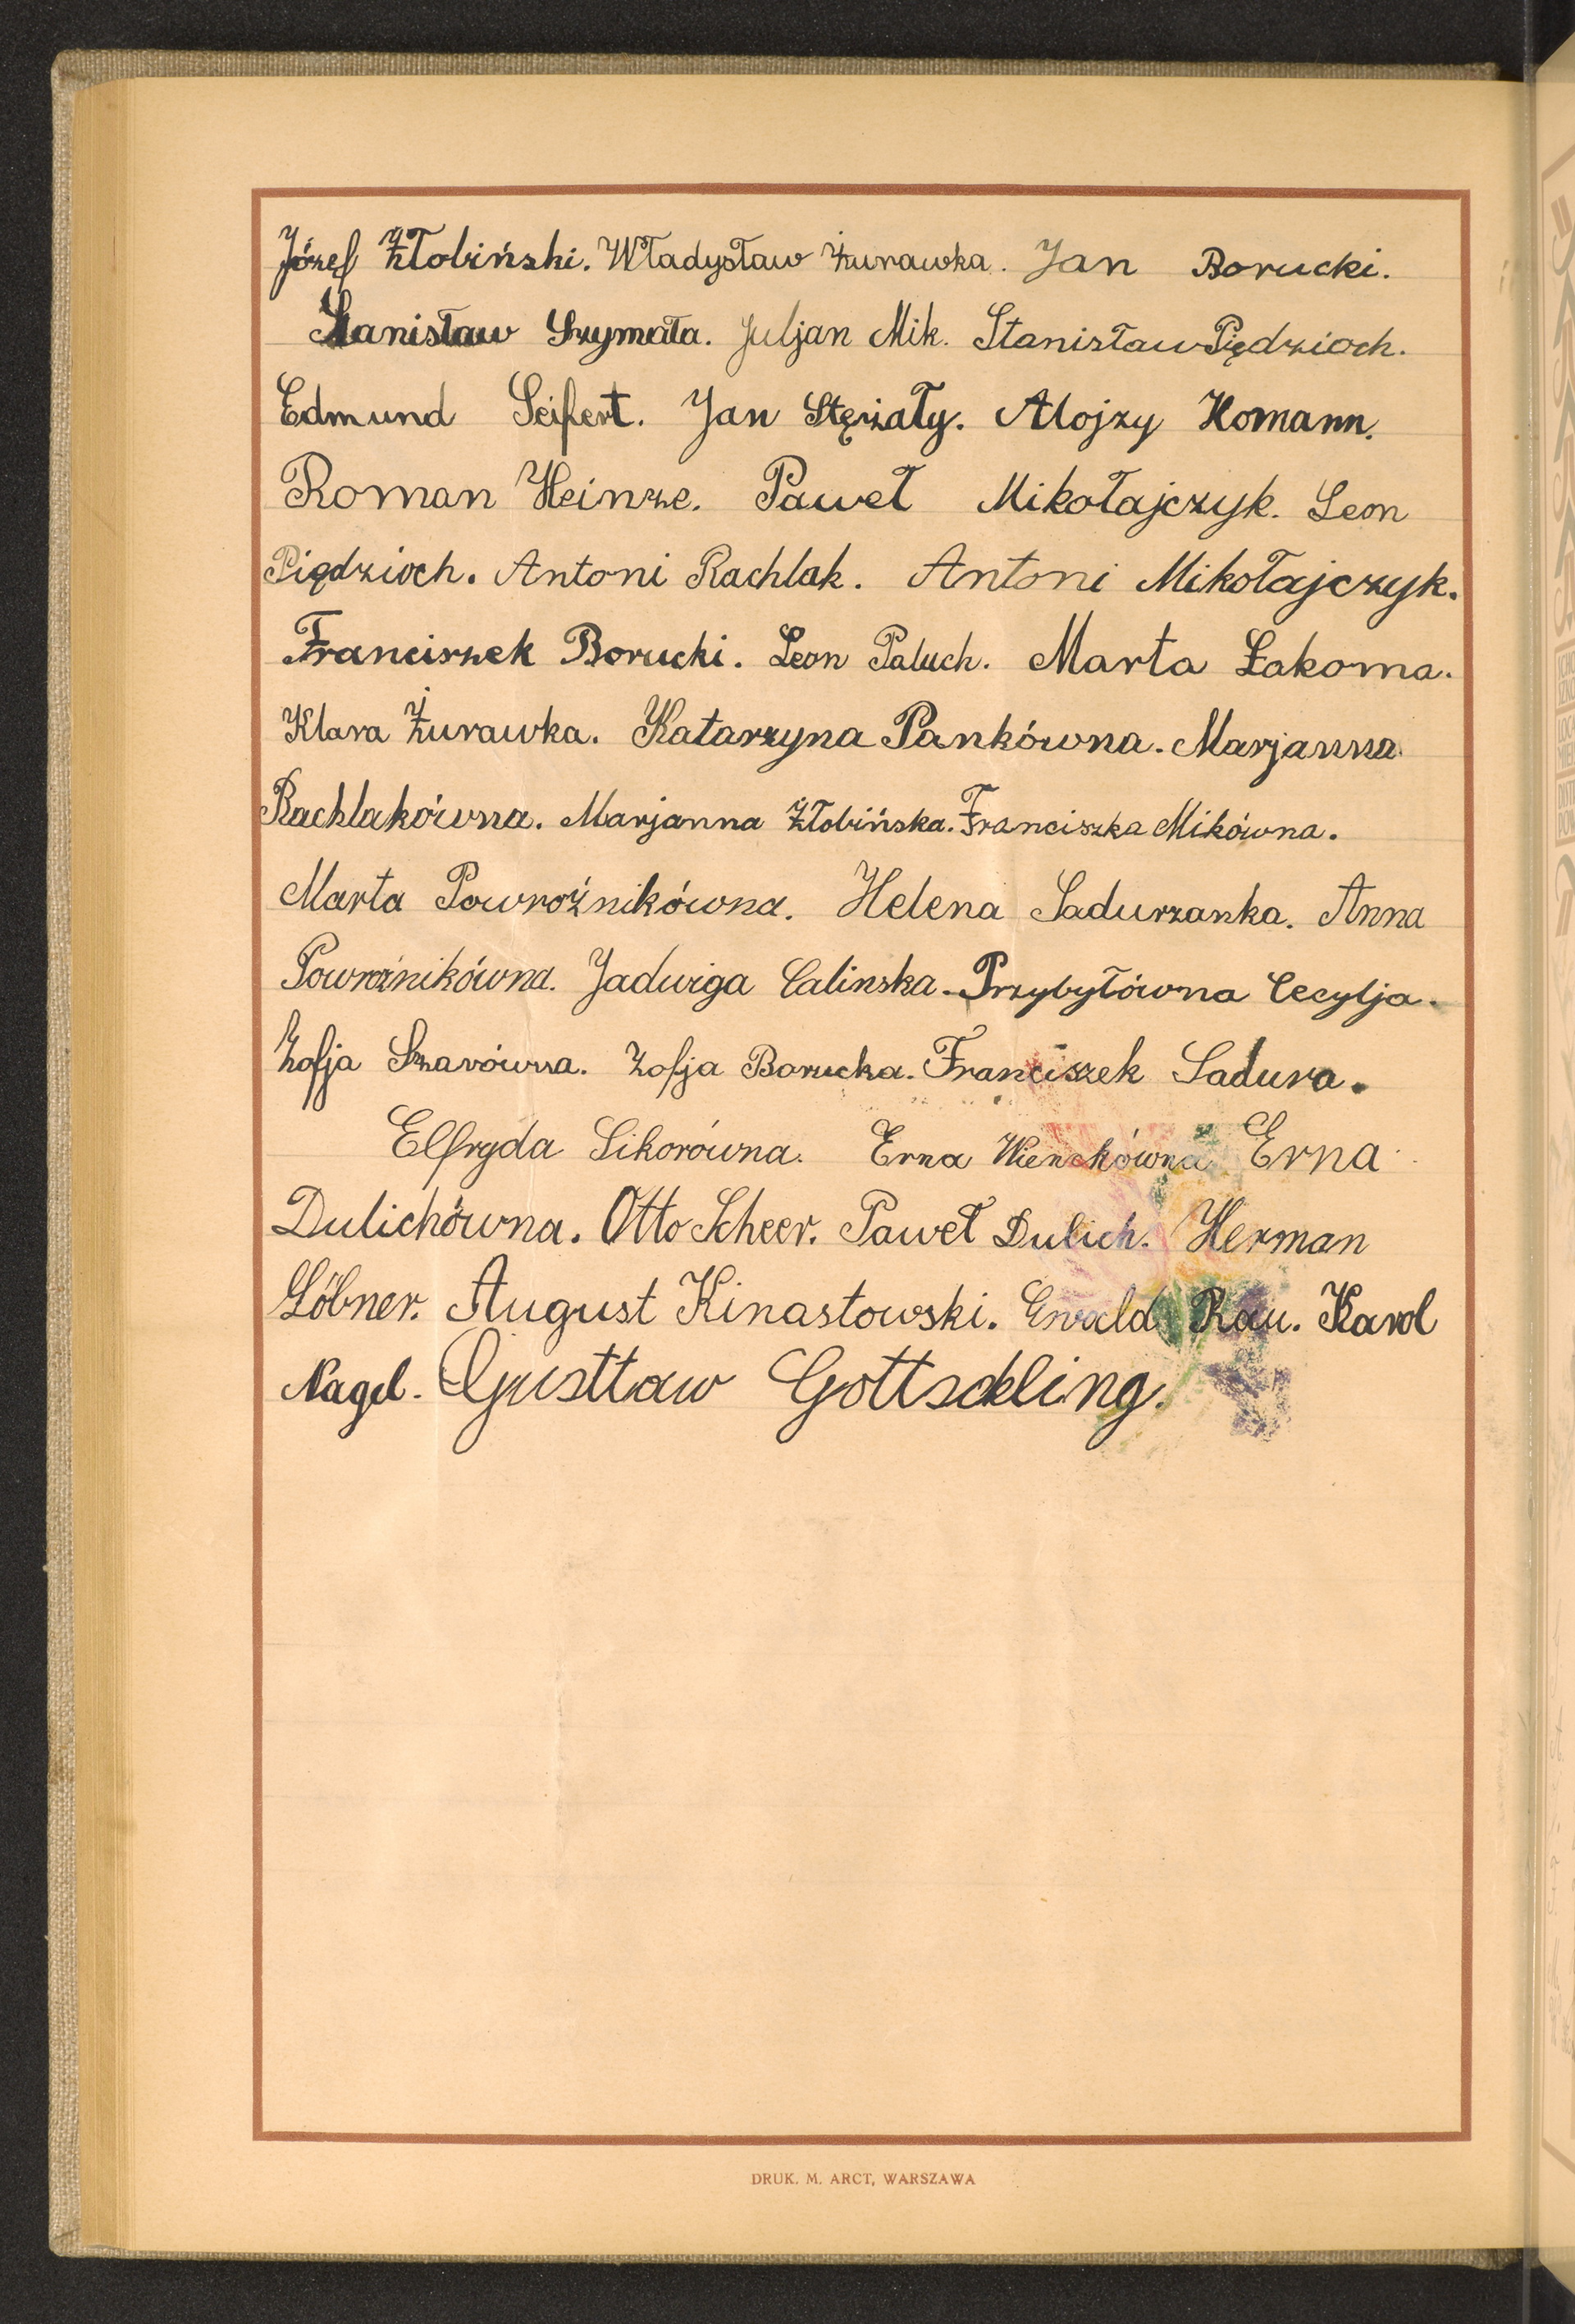 Józef Żłobiński. Władysław Żurawka. Jan Borucki.
Stanisław Szymała. Juljan Mik. Stanisław Piędzioch.
Edmund Seifert. Jan Stężały. Alojzy Homann.
Roman Heinze. Paweł Mikołajczyk. Leon
Piędzioch. Antoni Rachlak. Antoni Mikołajczyk.
Franciszek Borucki. Leon Paluch. Marta Łakoma.
Klara Żurawka. Katarzyna Pankówna. Marjanna
Rachlakówna. Marjanna Żłobińska. Franciszka Mikówna.
Marta Powroźnikówna. Helena Sadurzanka. Anna
Powroźnikówna. Jadwiga Calinska. Przybyłówna Cecylja.
Zofja Szarówna. Zofja Borucka. Franciszek Sadura.
Elfryda Sikorówna. Erna Wienchówna. Erna
Dulichówna. Otto Scheer. Paweł Dulich. Herman
Löbner. August Kinastowski. Ewald Rau. Karol
Nagel. Gusttaw Gottschling.
DRUK. M. ARCT, WARSZAWA